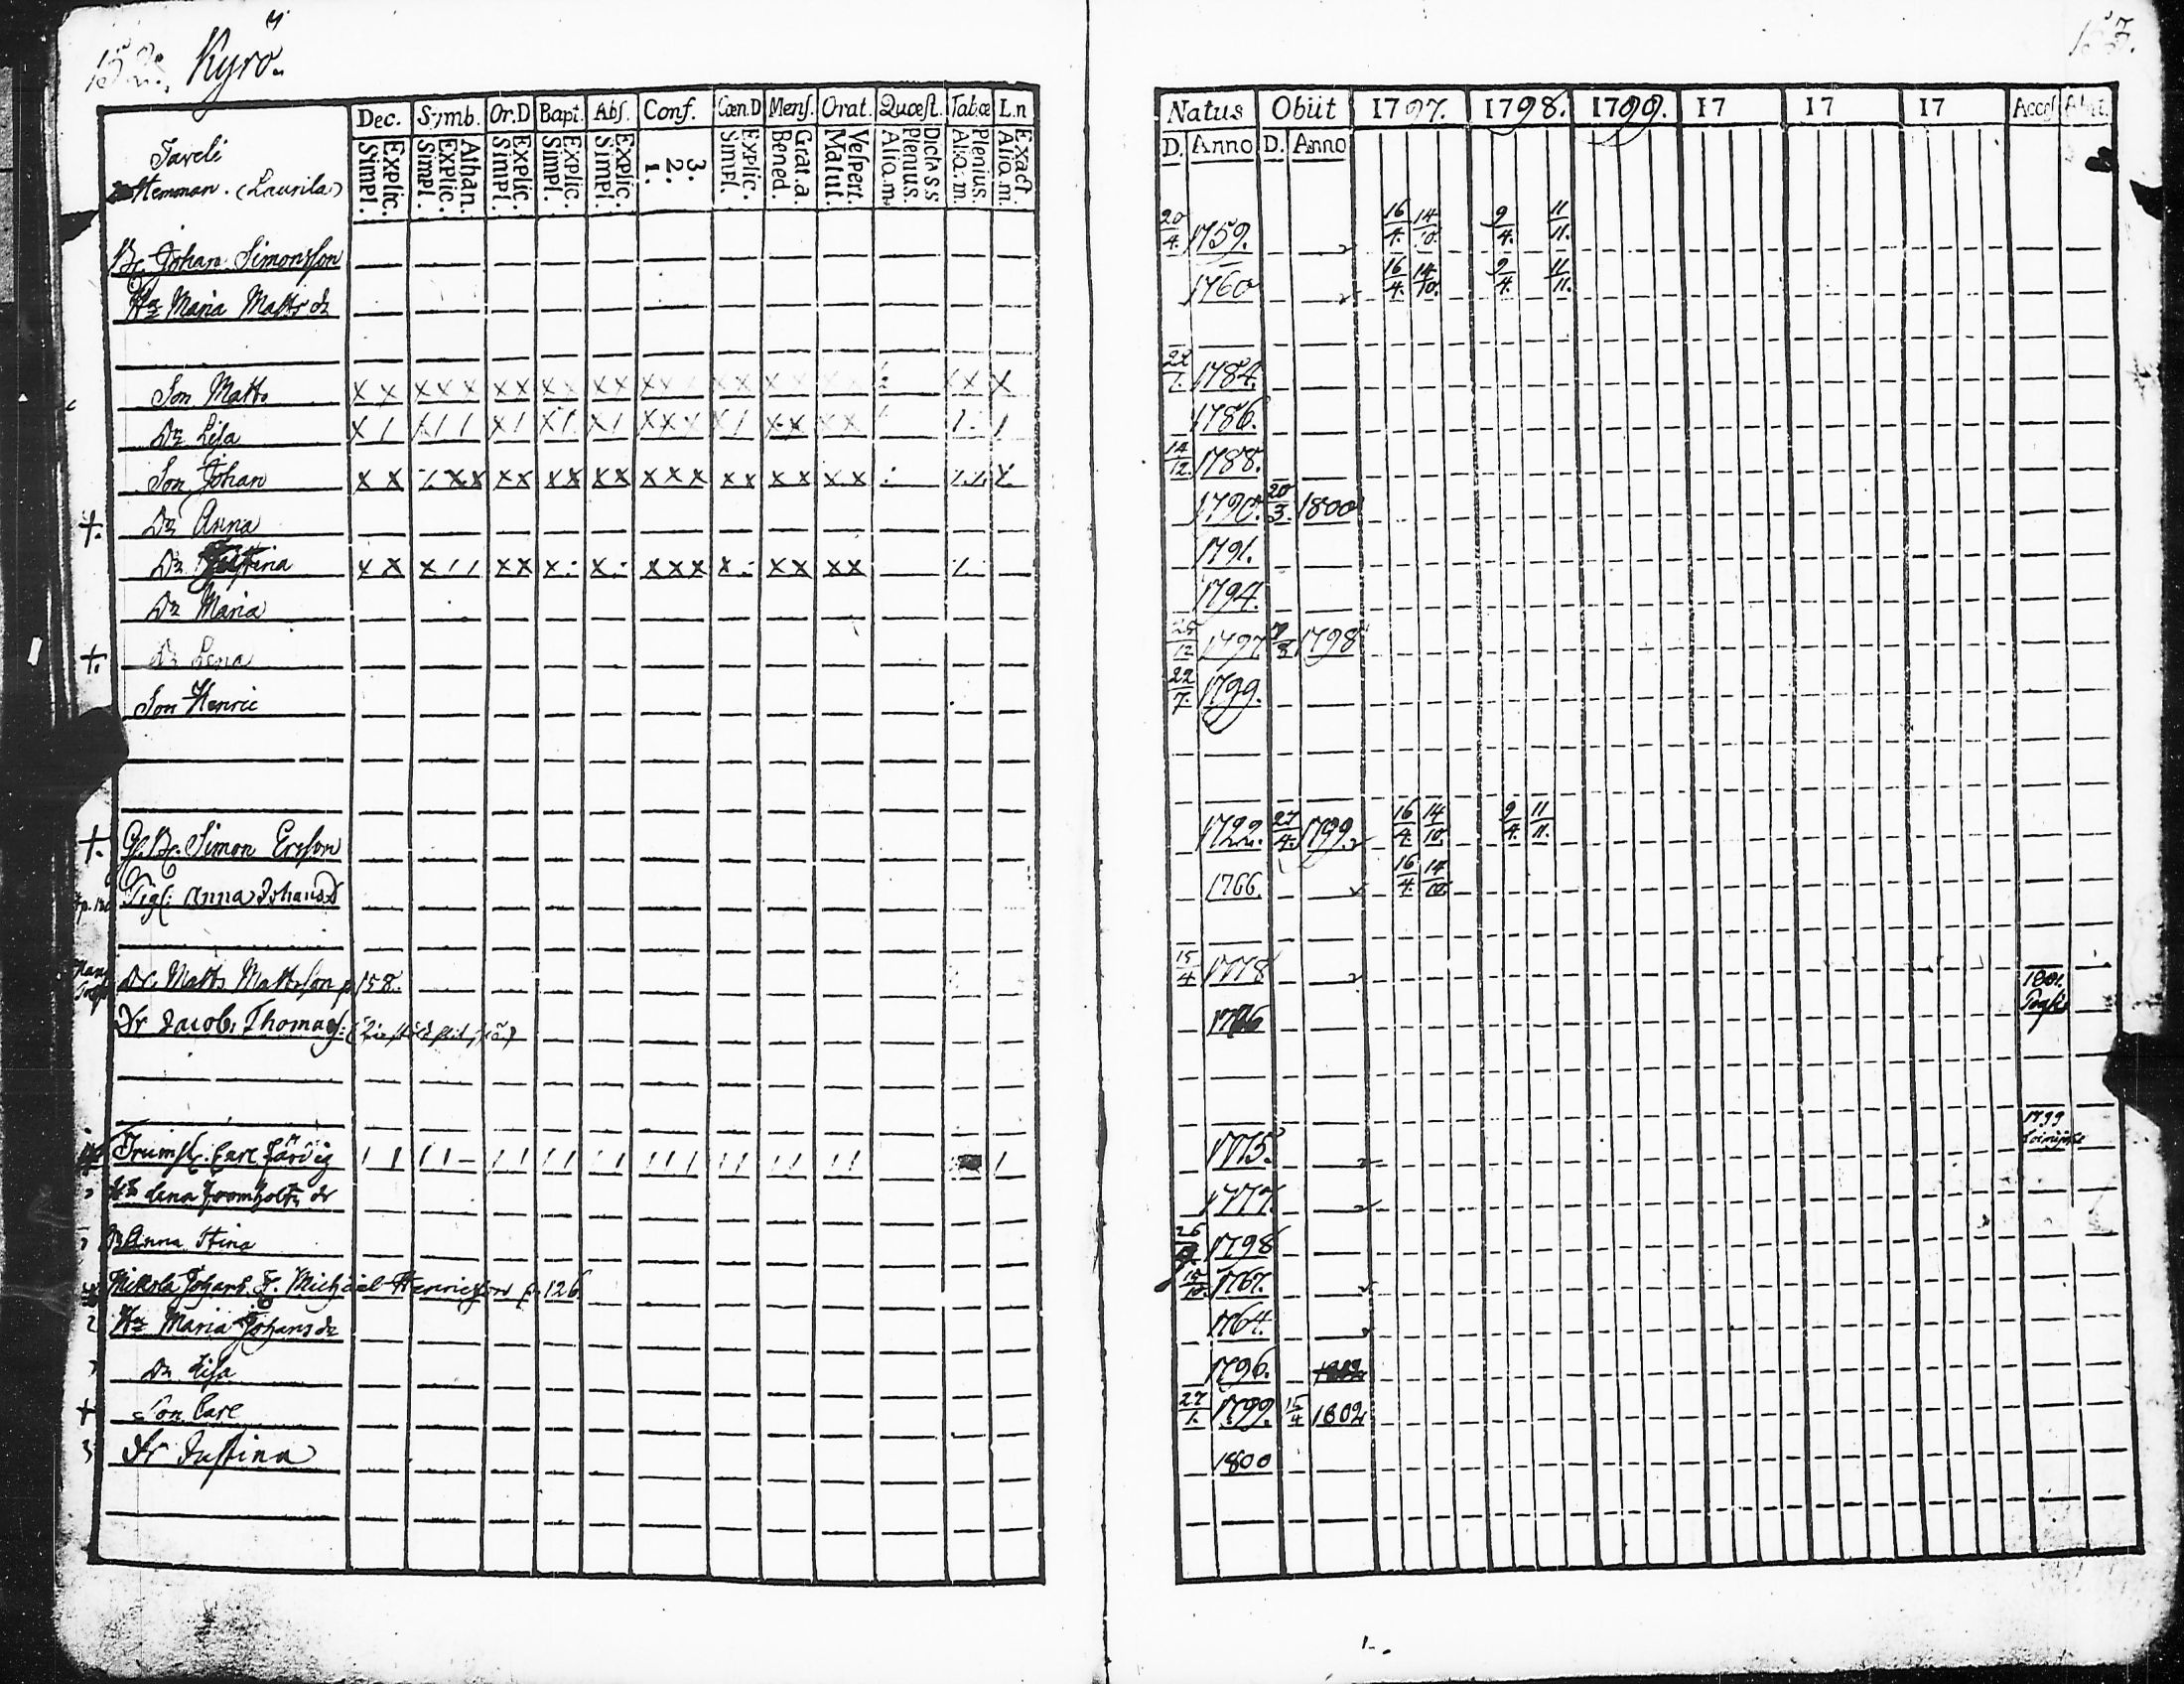 152. Kyrö. 153.
Dec. Symb. Or.D Bapt. Abs. Conf. Cœn.D Mens. Orat. Quæst. Tab.œ L.n
Explic. Simpl. Athan. Explic. Simpl. Explic. Simpl. Explic. Simpl. Explic. Simpl. 3. 2. 1. Explic. Simpl. Grat.a. Bened. Vespert. Matut. Dicta s s Plenius. Aliq.m. Plenius. Aliq.m. Exact Aliq.m.
Natus Obiit 1797. 1798. 1799. 17 17 17 Access Abiit.
D. Anno D. Anno
Saveli
Hemman. (Laurila)
Br. Johan Simonsson 20/4. 1759. 16/4. 14/10. 9/4. 11/11.
Hu Maria Matts dr 1760 16/4. 14/10. 9/4. 11/11.
Son Matts 22/1. 1784.
Dr Lisa 1786.
Son Johan 14/12. 1788.
†. Dr Anna 1790. 20/3. 1800
Dr Justina 1791.
Dr Maria 1794.
†. Dr Lena 25/12 1797 7/8 1798
Son Henric 22/7. 1799.
†. G. Br. Simon Ersson 1722. 27/4. 1799. 16/4. 14/10. 9/4. 11/11.
Anna Johansd 1766. 16/4. 14/10
Dr. Matts Mattsson p. 158. 15/4 1778 1801.
Dr Jacob Thomass:
Trumsl. Carl Färdig 1775. 1799
Hu Lena Fromholts dr 1777.
Dr Anna Stina 26 1798
Mikkola Johans Michael Henricsson p. 126. 15/10. 1767.
Hu Maria Johans dr 1764.
Dr Lisa 1796.
† Son Carl 27/1. 1799. 15/4 1802
Dr Justina 1800